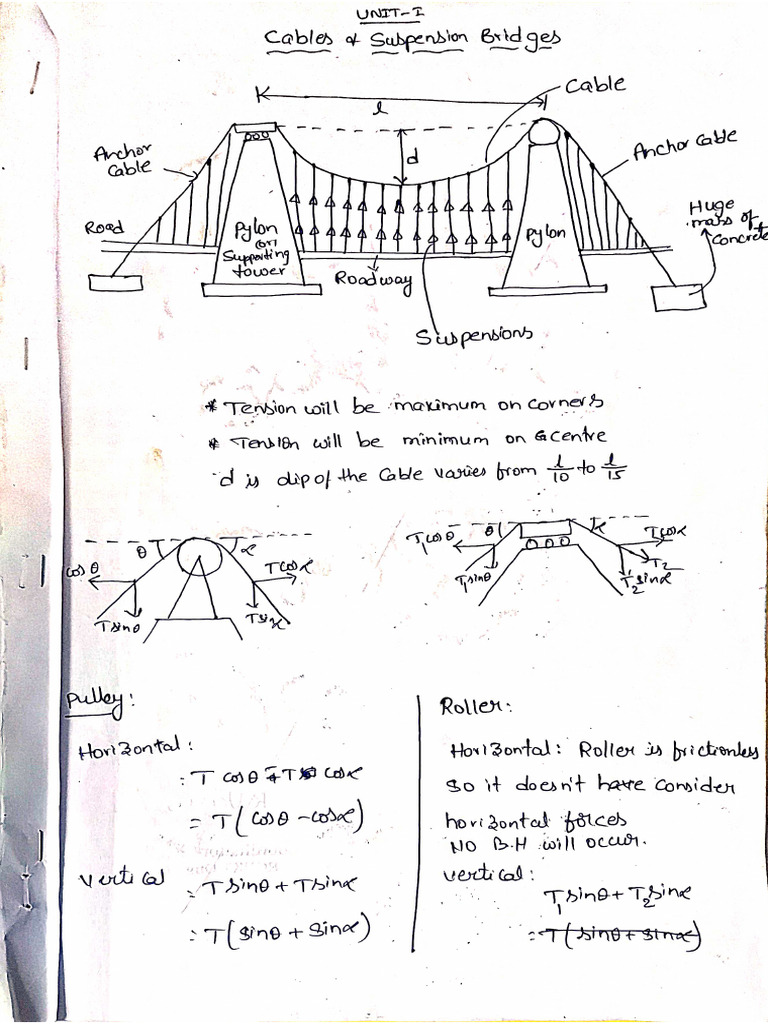 UNIT-I
Cables & Suspension Bridges
l
Cable
d
Anchor
Cable
Anchor Cable
Road
Pylon
(or)
Supporting
tower
Pylon
Huge
mass of
Concrete
Roadway
Suspensions
* Tension will be maximum on corners
* Tension will be minimum on centre
d is dip of the Cable varies from l/10 to l/15
θ α
cosθ Tcosα
Tsinθ Tsinα
T₁cosθ θ α Tcosα
T₁sinθ T₂
T₂sinα
Pulley:
Horizontal:
= T cosθ - T cosα
= T(cosθ - cosα)
Vertical = Tsinθ + Tsinα
= T(sinθ + sinα)
Roller:
Horizontal: Roller is frictionless
so it doesn't have consider
horizontal forces
NO B.M will occur.
vertical:
T₁sinθ + T₂sinα
= T(sinθ + sinα)